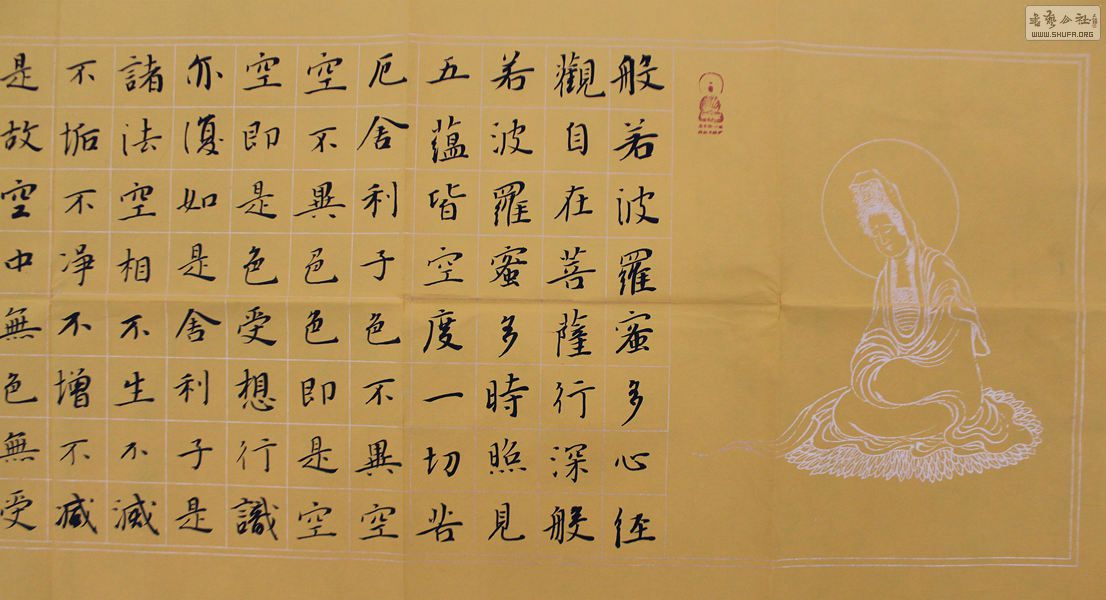 般若波羅蜜多心经
觀自在菩薩行深般
若波羅蜜多時照見
五蘊皆空度一切苦
厄舍利子色不異空
空不異色色即是空
空即是色受想行識
亦復如是舍利子是
諸法空相不生不滅
不垢不净不增不减
是故空中無色無受
書藝公社
WWW.SHUFA.ORG